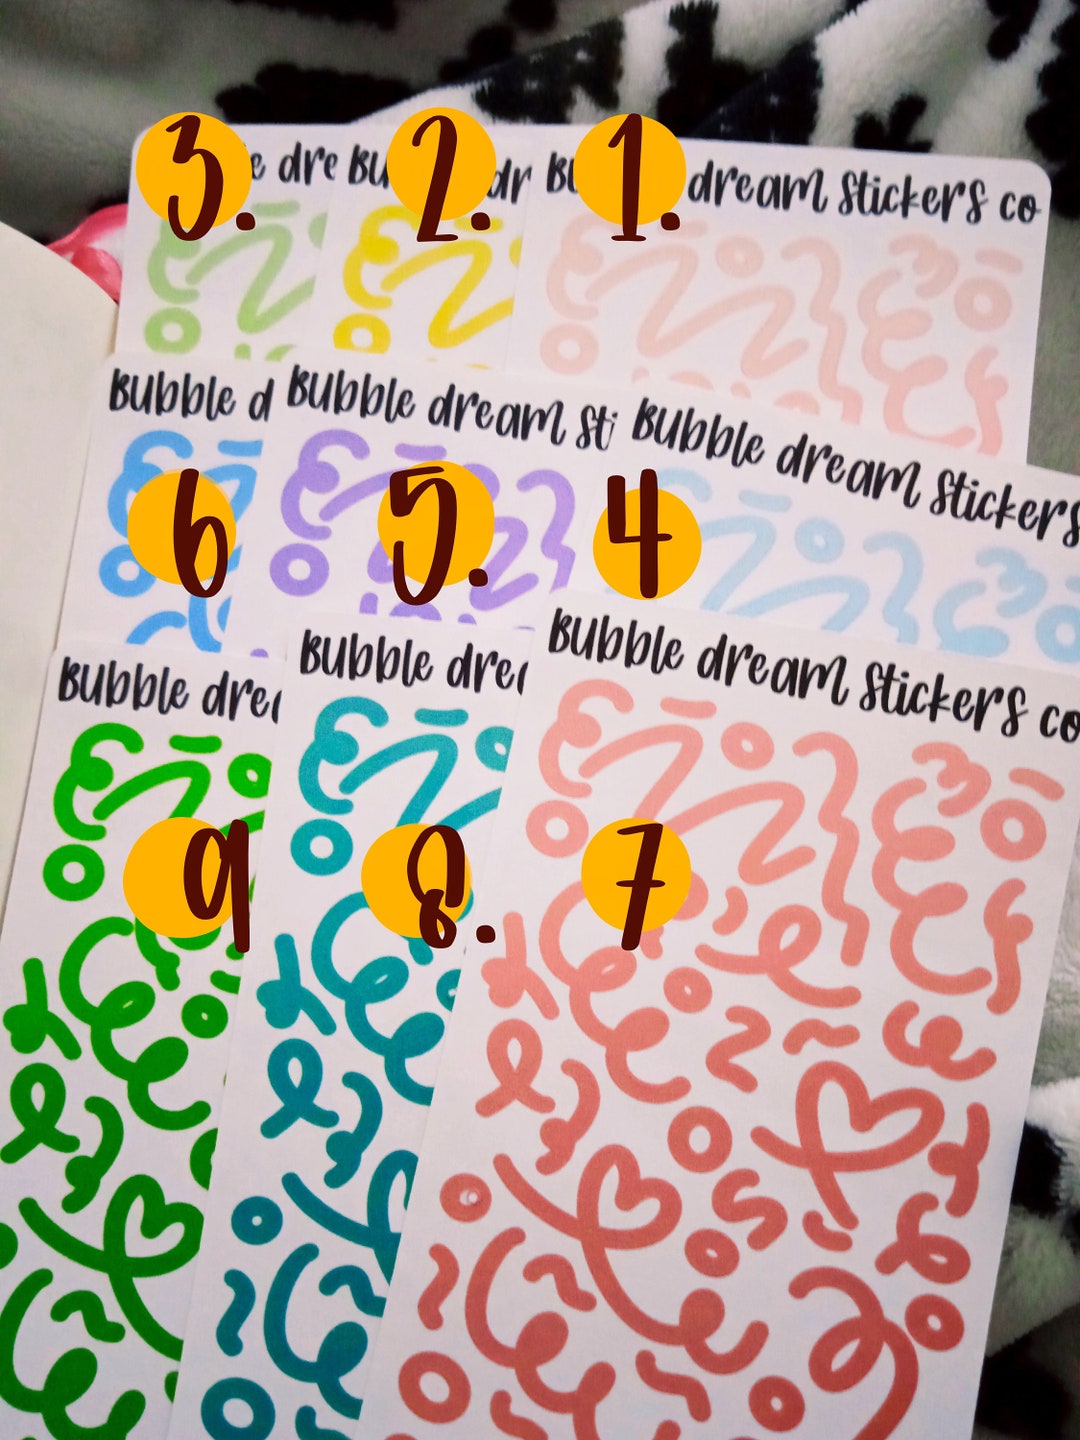 3. 2. 1.
e dre Bu dr B dream Stickers co
Bubble d Bubble dream Sti Bubble dream Stickers
6 5. 4
Bubble drea Bubble drea Bubble dream Stickers co
9 8. 7